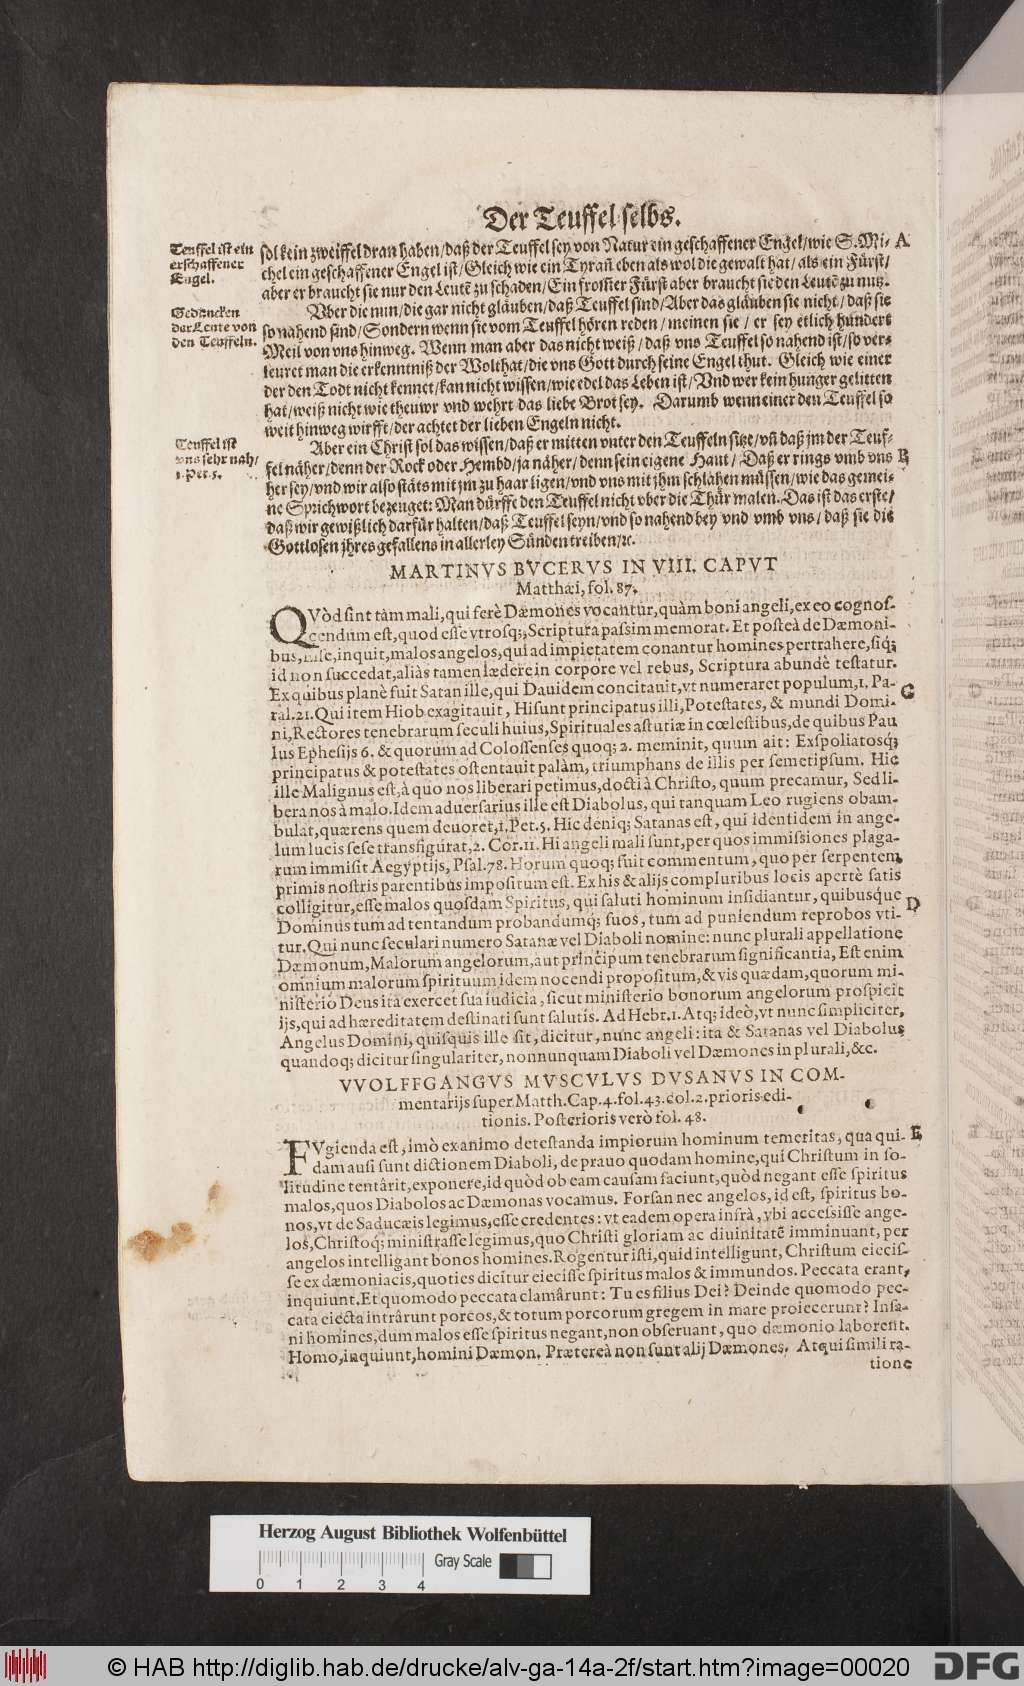 Der Teuffel selbs.
Teuffel ist ein
erschaffener
Engel.
sol kein zweiffel dran haben/daß der Teuffel sey von Natur ein geschaffener Engel/wie S. Mi- A
chel ein geschaffener Engel ist/Gleich wie ein Tyrañ eben als wol die gewalt hat/als ein Fürst/
aber er braucht sie nur den Leutẽ zu schaden/Ein frommer Fürst aber braucht sie den Leutẽ zu nutz.
Gedancken
der Leute von
den Teuffeln.
Vber die nun/die gar nicht gläuben/daß Teuffel sind/Aber das gläuben sie nicht/daß sie
so nahend sind/Sondern wenn sie vom Teuffel hören reden/meinen sie/er sey etlich hundert
Meil von vns hinweg. Wenn man aber das nicht weiß/daß vns Teuffel so nahend ist/so ver-
leuret man die erkenntniß der Wolthat/die vns Gott durch seine Engel thut. Gleich wie einer
der den Todt nicht kennet/kan nicht wissen/wie edel das Leben ist/Vnd wer kein hunger gelitten
hat/weiß nicht wie theuwr vnd wehrt das liebe Brot sey. Darumb wenn einer den Teuffel so
weit hinweg wirfft/der achtet der lieben Engeln nicht.
Teuffel ist
vns sehr nah/
1. Pet. 5.
Aber ein Christ sol das wissen/daß er mitten vnter den Teuffeln sitze/vñ daß jm der Teuf-
fel näher/denn der Rock oder Hembd/ja näher/denn sein eigene Haut/Daß er rings vmb vns B
her sey/vnd wir also stäts mit jm zu haar ligen/vnd vns mit jhm schlahen müssen/wie das gemei-
ne Sprichwort bezeuget: Man dürffe den Teuffel nicht vber die Thür malen. Das ist das erste/
daß wir gewißlich darfür halten/daß Teuffel seyn/vnd so nahend bey vnd vmb vns/daß sie die
Gottlosen jhres gefallens in allerley Sünden treiben/ꝛc.
MARTINVS BVCERVS IN VIII. CAPVT
Matthæi, fol. 87.
QVòd sint tàm mali, qui ferè Dæmones vocantur, quàm boni angeli, ex eo cognos-
cendum est, quod esse vtrosq;, Scriptura passim memorat. Et posteà de Dæmoni-
bus, Esse, inquit, malos angelos, qui ad impietatem conantur homines pertrahere, siq;
id non succedat, aliàs tamen lædere in corpore vel rebus, Scriptura abundè testatur.
Ex quibus planè fuit Satan ille, qui Dauidem concitauit, vt numeraret populum, 1. Pa- C
ral. 21. Qui item Hiob exagitauit, Hi sunt principatus illi, Potestates, & mundi Domi-
ni, Rectores tenebrarum seculi huius, Spirituales astutiæ in cœlestibus, de quibus Pau
lus Ephesijs 6. & quorum ad Colossenses quoq; 2. meminit, quum ait: Exspoliatosq;
principatus & potestates ostentauit palàm, triumphans de illis per semetipsum. Hic
ille Malignus est, à quo nos liberari petimus, docti à Christo, quum precamur, Sed li-
bera nos à malo. Idem aduersarius ille est Diabolus, qui tanquam Leo rugiens obam-
bulat, quærens quem deuoret, 1. Pet. 5. Hic deniq; Satanas est, qui identidem in ange-
lum lucis sese transfigurat, 2. Cor. 11. Hi angeli mali sunt, per quos immissiones plaga-
rum immisit Aegyptijs, Psal. 78. Horum quoq; fuit commentum, quo per serpentem
primis nostris parentibus impositum est. Ex his & alijs compluribus locis apertè satis
colligitur, esse malos quosdam Spiritus, qui saluti hominum insidiantur, quibusque D
Dominus tum ad tentandum probandumq; suos, tum ad puniendum reprobos vti-
tur. Qui nunc seculari numero Satanæ vel Diaboli nomine: nunc plurali appellatione
Dæmonum, Malorum angelorum, aut principum tenebrarum significantia, Est enim
omnium malorum spirituum idem nocendi propositum, & vis quædam, quorum mi-
nisterio Deus ita exercet sua iudicia, sicut ministerio bonorum angelorum prospicit
ijs, qui ad hæreditatem destinati sunt salutis. Ad Hebr. 1. Atq; ideò, vt nunc simpliciter,
Angelus Domini, quisquis ille sit, dicitur, nunc angeli: ita & Satanas vel Diabolus
quandoq; dicitur singulariter, nonnunquam Diaboli vel Dæmones in plurali, &c.
VVOLFFGANGVS MVSCVLVS DVSANVS IN COM-
mentarijs super Matth. Cap. 4. fol. 43. col. 2. prioris edi-
tionis. Posterioris verò fol. 48.
FVgienda est, imò ex animo detestanda impiorum hominum temeritas, qua qui- E
dam ausi sunt dictionem Diaboli, de prauo quodam homine, qui Christum in so-
litudine tentârit, exponere, id quòd ob eam causam faciunt, quòd negant esse spiritus
malos, quos Diabolos ac Dæmonas vocamus. Forsan nec angelos, id est, spiritus bo-
nos, vt de Saducæis legimus, esse credentes: vt eadem opera infrà, vbi accessisse ange-
los, Christoq; ministrasse legimus, quo Christi gloriam ac diuinitatẽ imminuant, per
angelos intelligant bonos homines. Rogentur isti, quid intelligunt, Christum eiecis-
se ex dæmoniacis, quoties dicitur eiecisse spiritus malos & immundos. Peccata erant,
inquiunt. Et quomodo peccata clamârunt: Tu es filius Dei? Deinde quomodo pec-
cata eiecta intrârunt porcos, & totum porcorum gregem in mare proiecerunt? Insa-
ni homines, dum malos esse spiritus negant, non obseruant, quo dæmonio laborent.
Homo, inquiunt, homini Dæmon. Prætereà non sunt alij Dæmones. Atqui simili ra-
tione
Herzog August Bibliothek Wolfenbüttel
Gray Scale
0 1 2 3 4
© HAB http://diglib.hab.de/drucke/alv-ga-14a-2f/start.htm?image=00020
DFG